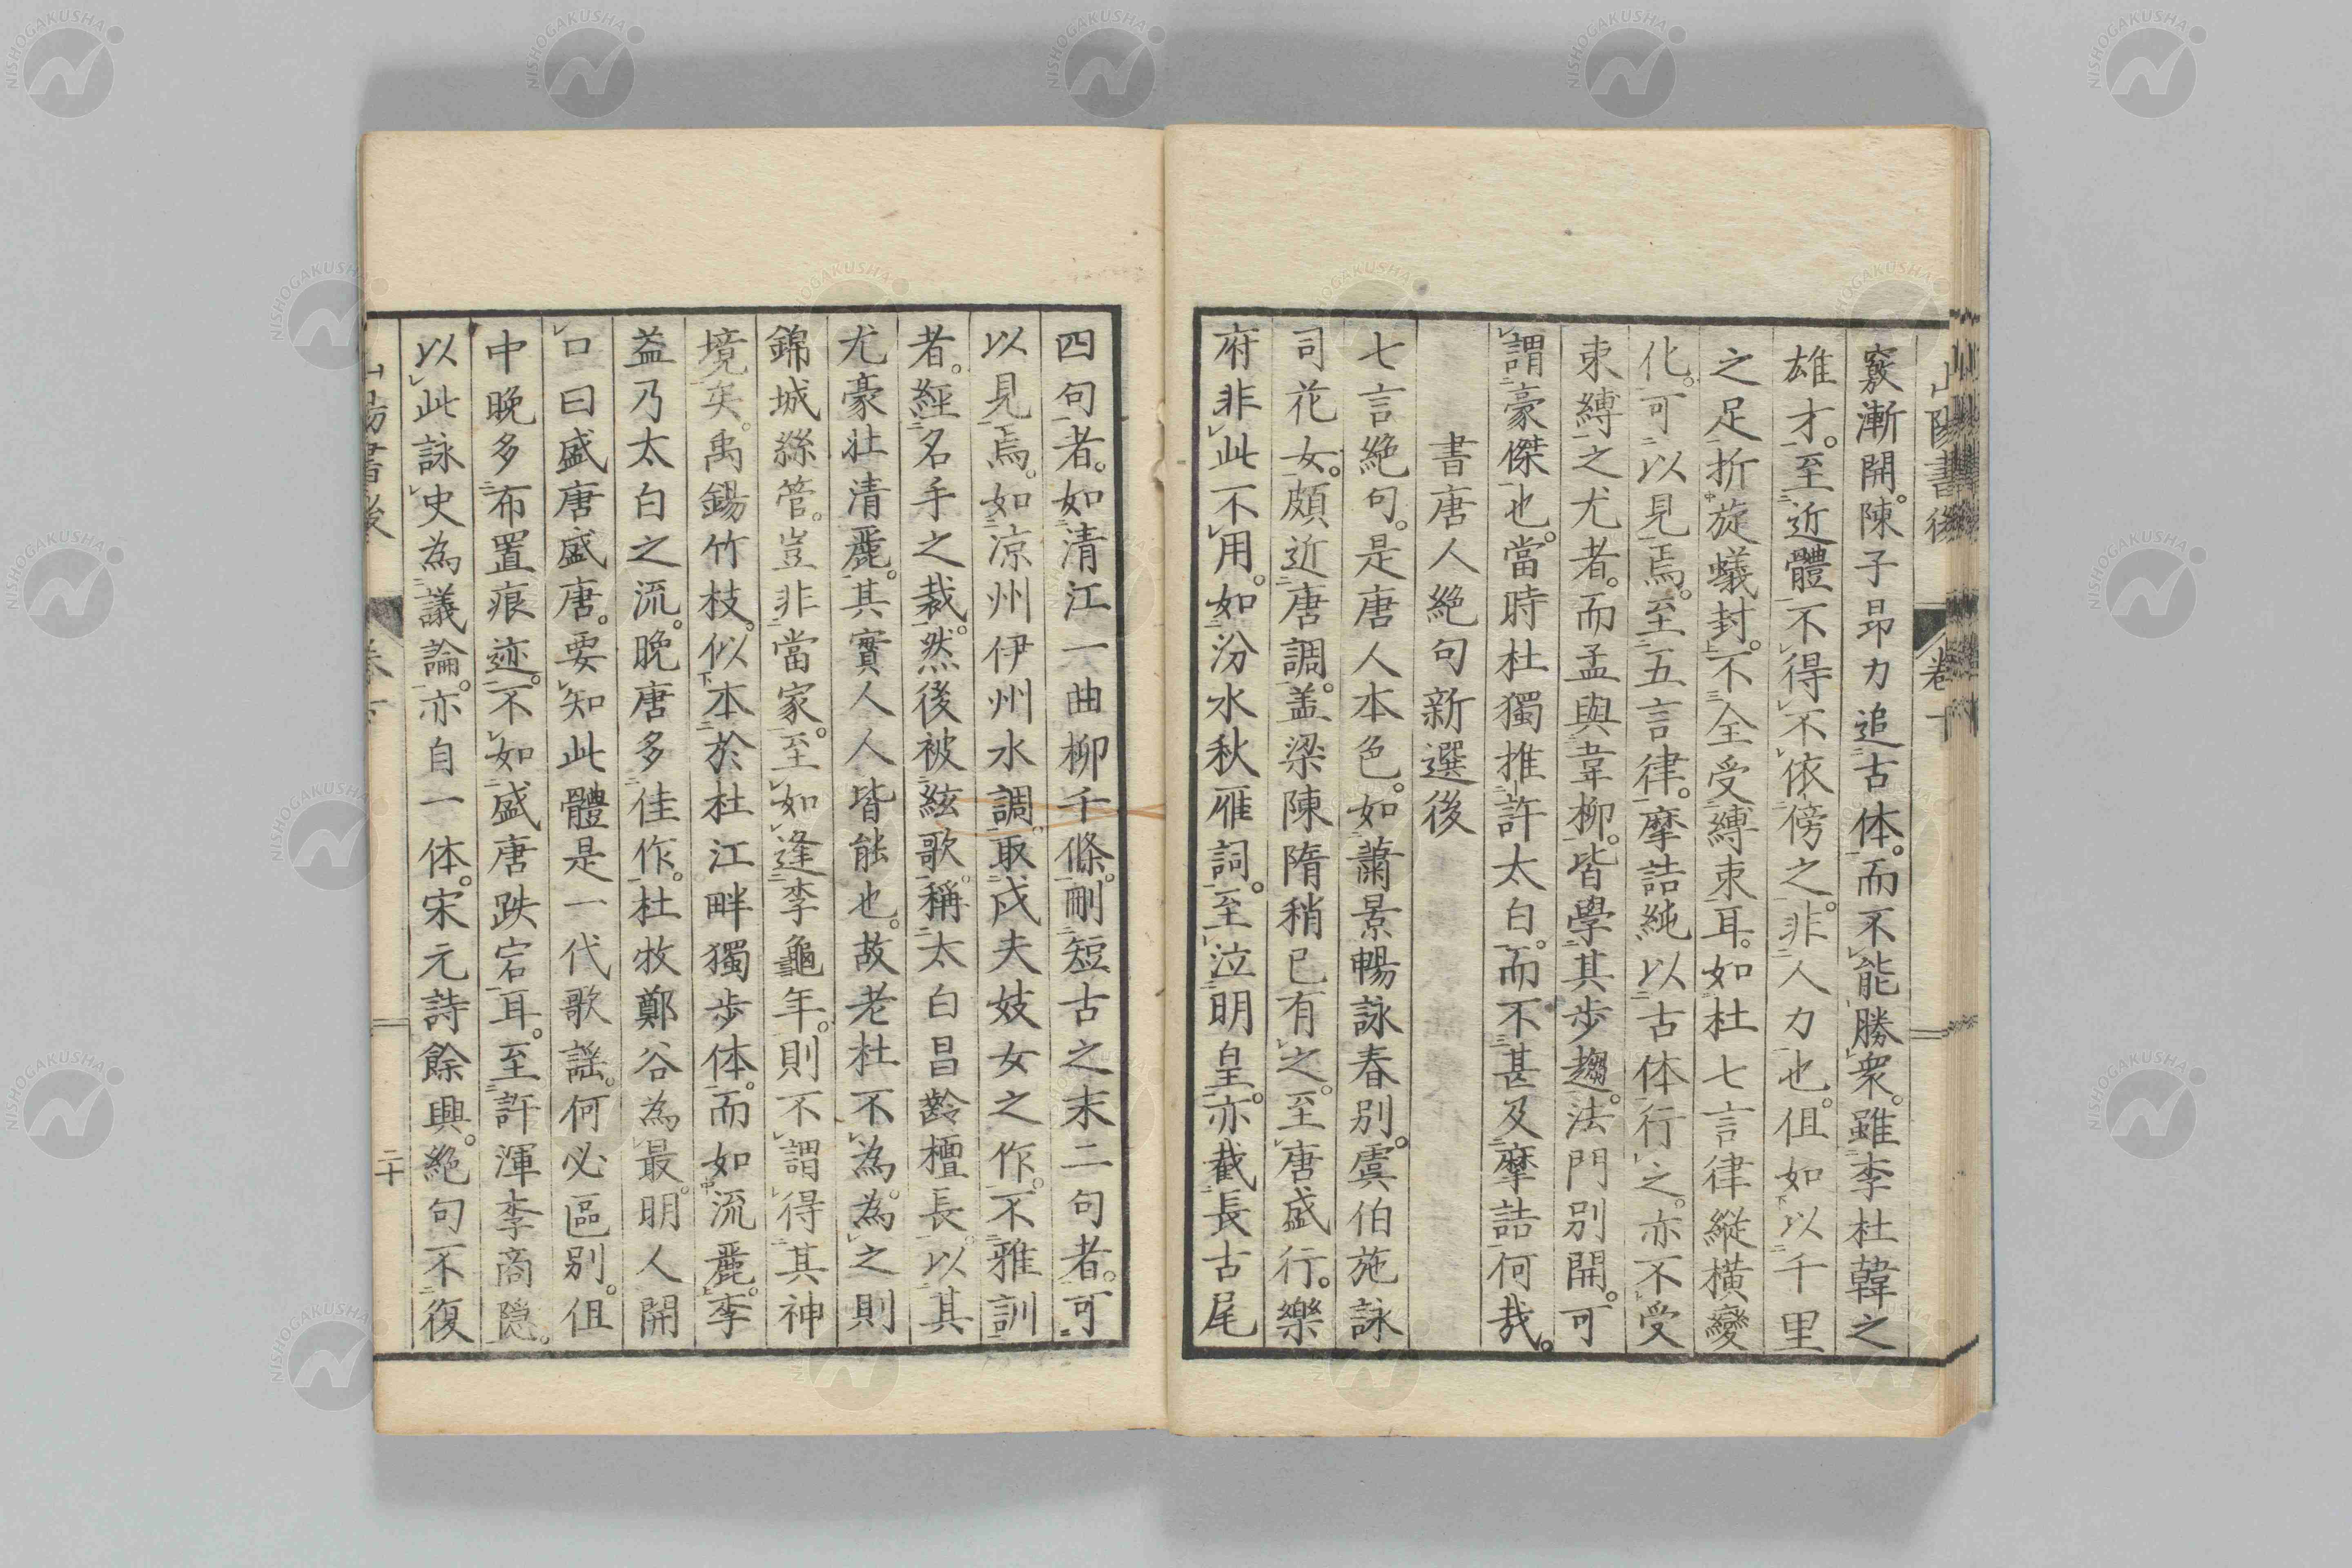 山陽書後 卷下
竅漸開。陳子昂力追古体。而不能勝衆。雖李杜韓之
雄才。至近體不得不依傍之。非人力也。但如以千里
之足。折旋蟻封。不全受縛束耳。如杜七言律縱橫變
化。可以見焉。至五言律。摩詰純以古体行之。亦不受
束縛之尤者。而孟與韋柳。皆學其步趨。法門別開。可
謂豪傑也。當時杜獨推許太白。而不甚及摩詰何哉。
書唐人絶句新選後
七言絶句。是唐人本色。如蕭景暢詠春別。虞伯施詠
司花女。頗近唐調。盖梁陳隋稍已有之。至唐盛行。樂
府非此不用。如汾水秋雁詞。至泣明皇。亦截長古尾
四句者。如清江一曲柳千條。刪短古之末二句者。可
以見焉。如凉州伊州水調。取戍夫妓女之作。不雅訓
者。經名手之裁。然後被絃歌。稱太白昌齡檀長。以其
尤豪壮清麗。其實人人皆能也。故老杜不為。為之則
錦城絲管。豈非當家。至如逢李龜年。則不謂得其神
境矣。禹錫竹枝。似本於杜江畔獨歩体。而如流麗。李
益乃太白之流。晩唐多佳作。杜牧鄭谷為最。明人開
口曰盛唐盛唐。要知此體是一代歌謡。何必區別。但
中晩多布置痕迹。不如盛唐跌宕耳。至許渾李商隠。
以此詠史為議論。亦自一体。宋元詩餘興。絶句不復
山陽書後 卷下 二十
NISHOGAKUSHA